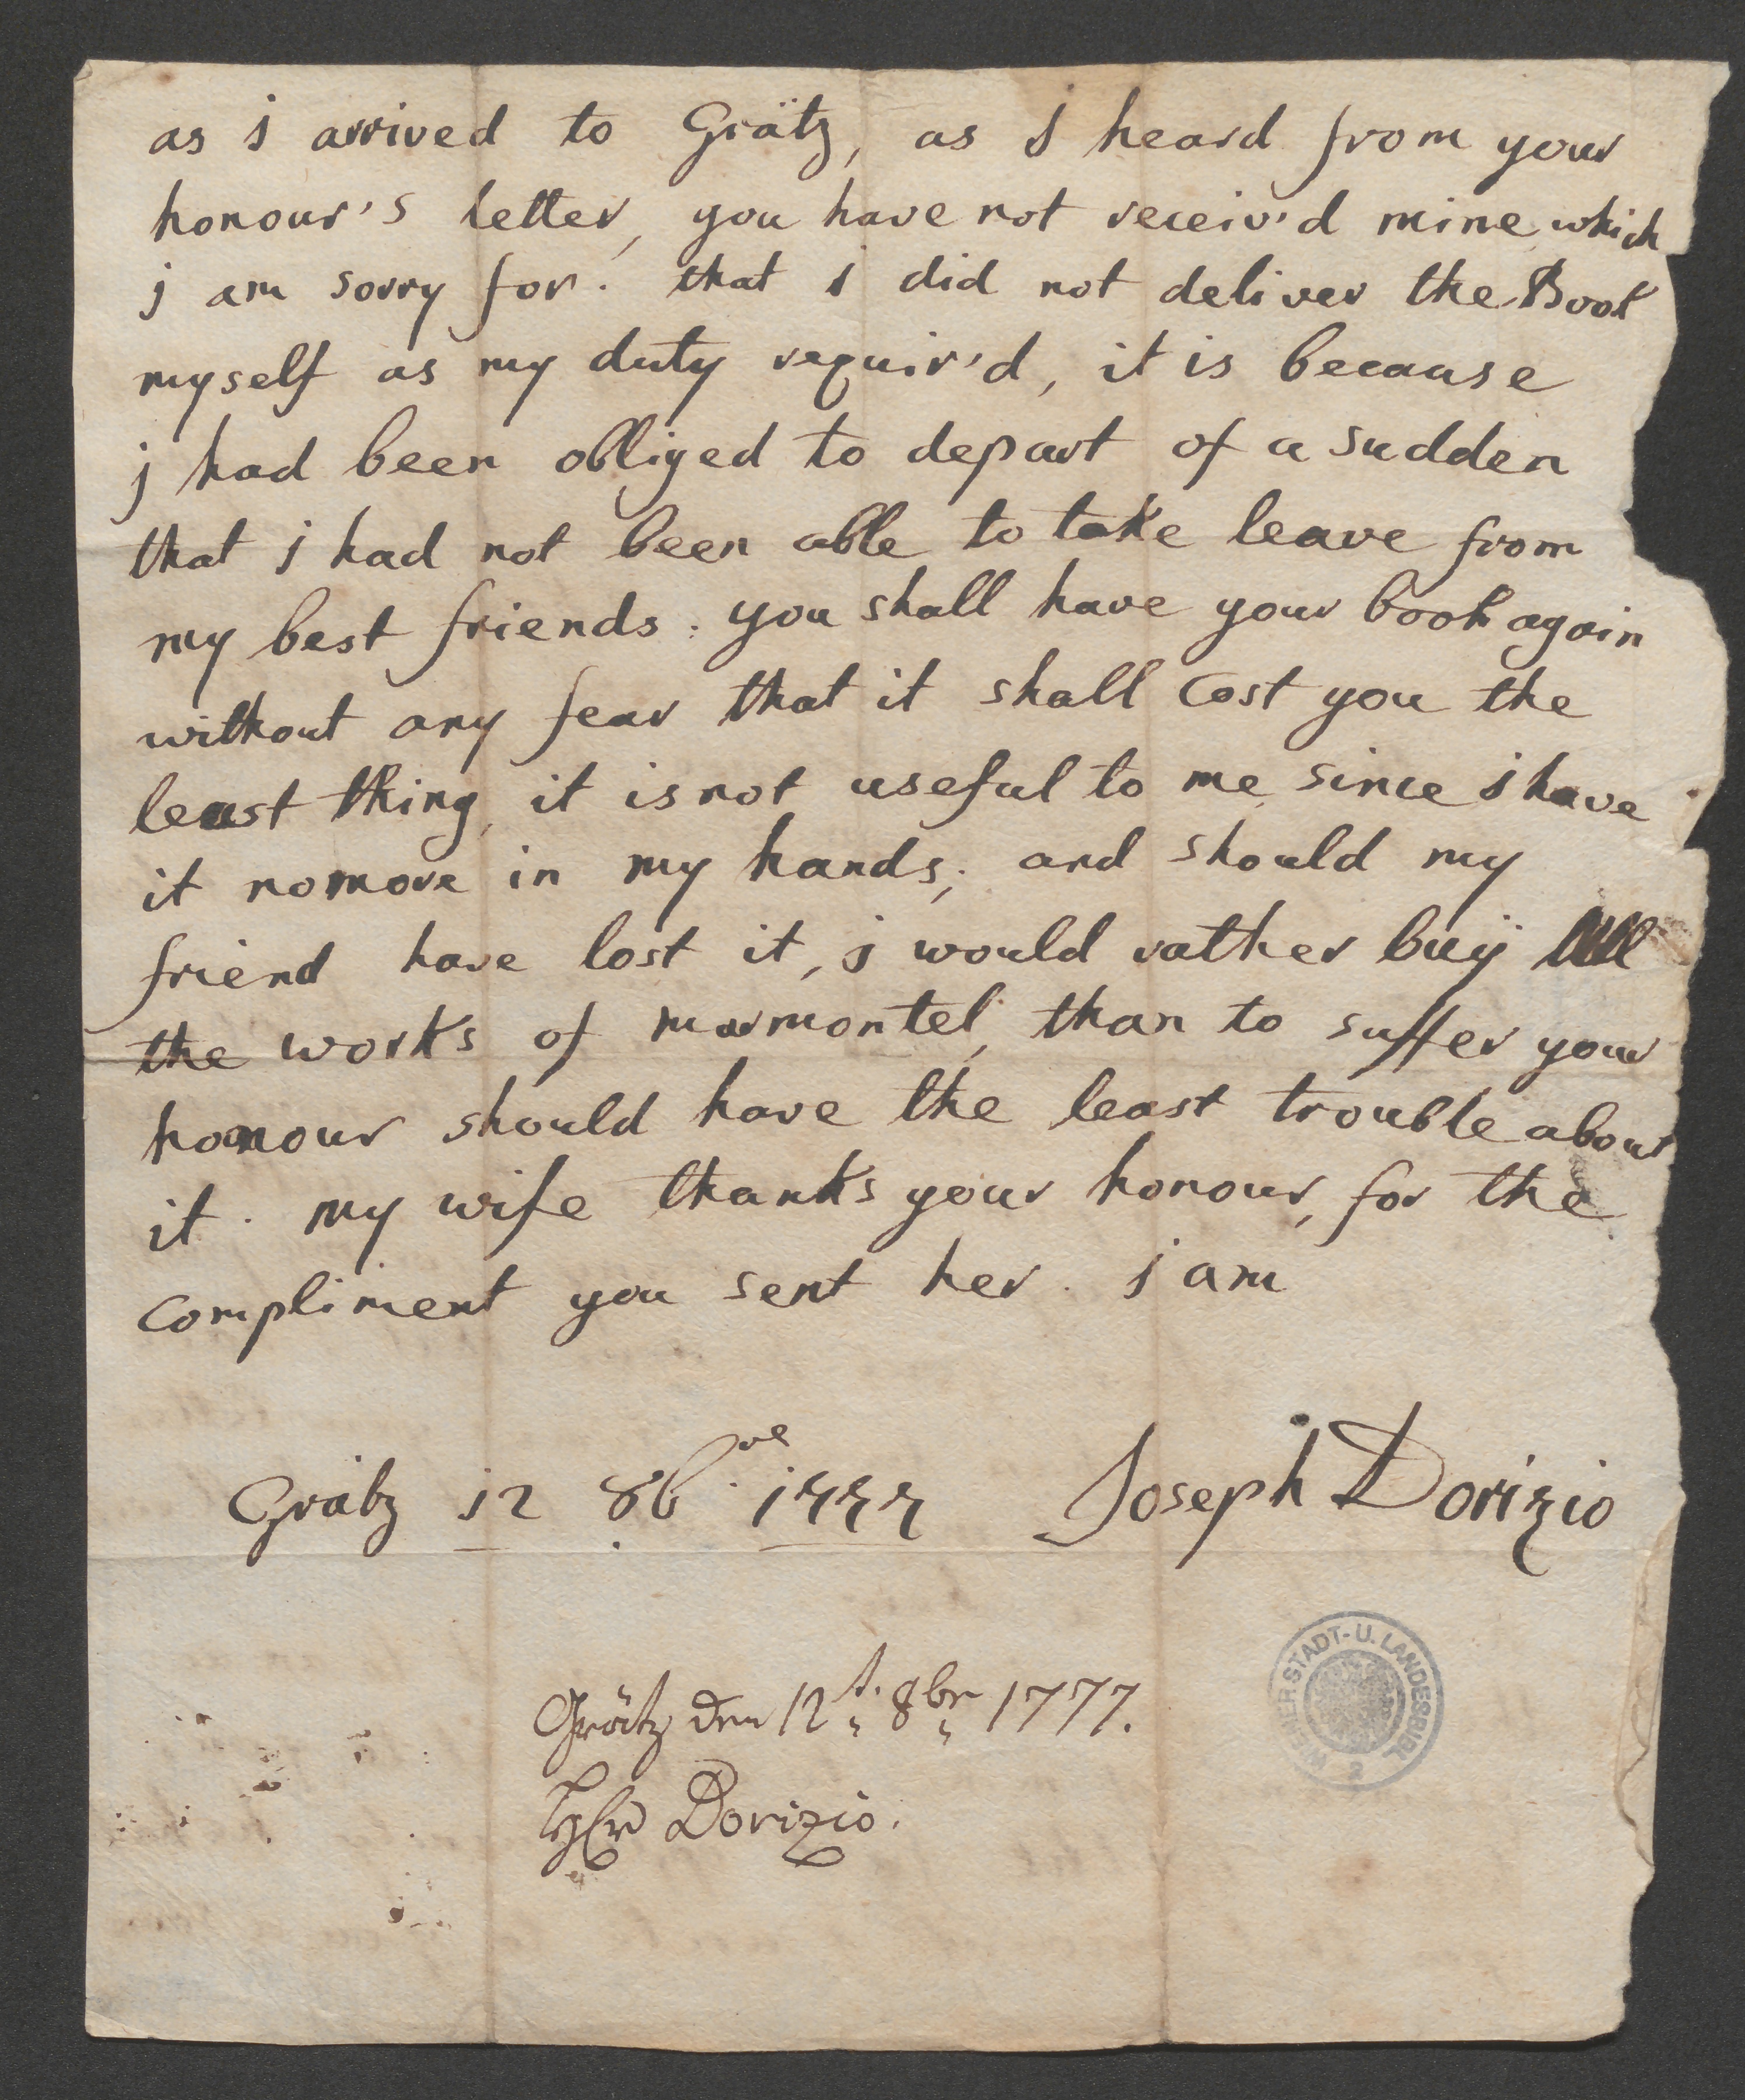 as i arrived to Grätz, as I heard from your
honour's letter, you have not receiv'd mine, which
j am sorry for. that i did not deliver the Book
myself as my duty requir'd, it is because
j had been obliged to depart of a sudden
that j had not been able to take leave from
my best friends. you shall have your book again
without any fear that it shall cost you the
least thing, it is not useful to me, since I have
it nomore in my hands; and should my
friend have lost it, j would rather buÿ all
the works of marmontel, than to suffer your
honour should have the least trouble about
it. my wife thanks your honour, for the
compliment you sent her. j am
Grätz 12 8b.re 1777 Joseph Dorizio
Grätz den 12t. 8br 1777.
Dorizio.
WIENER STADT-U. LANDESBIBL.
2